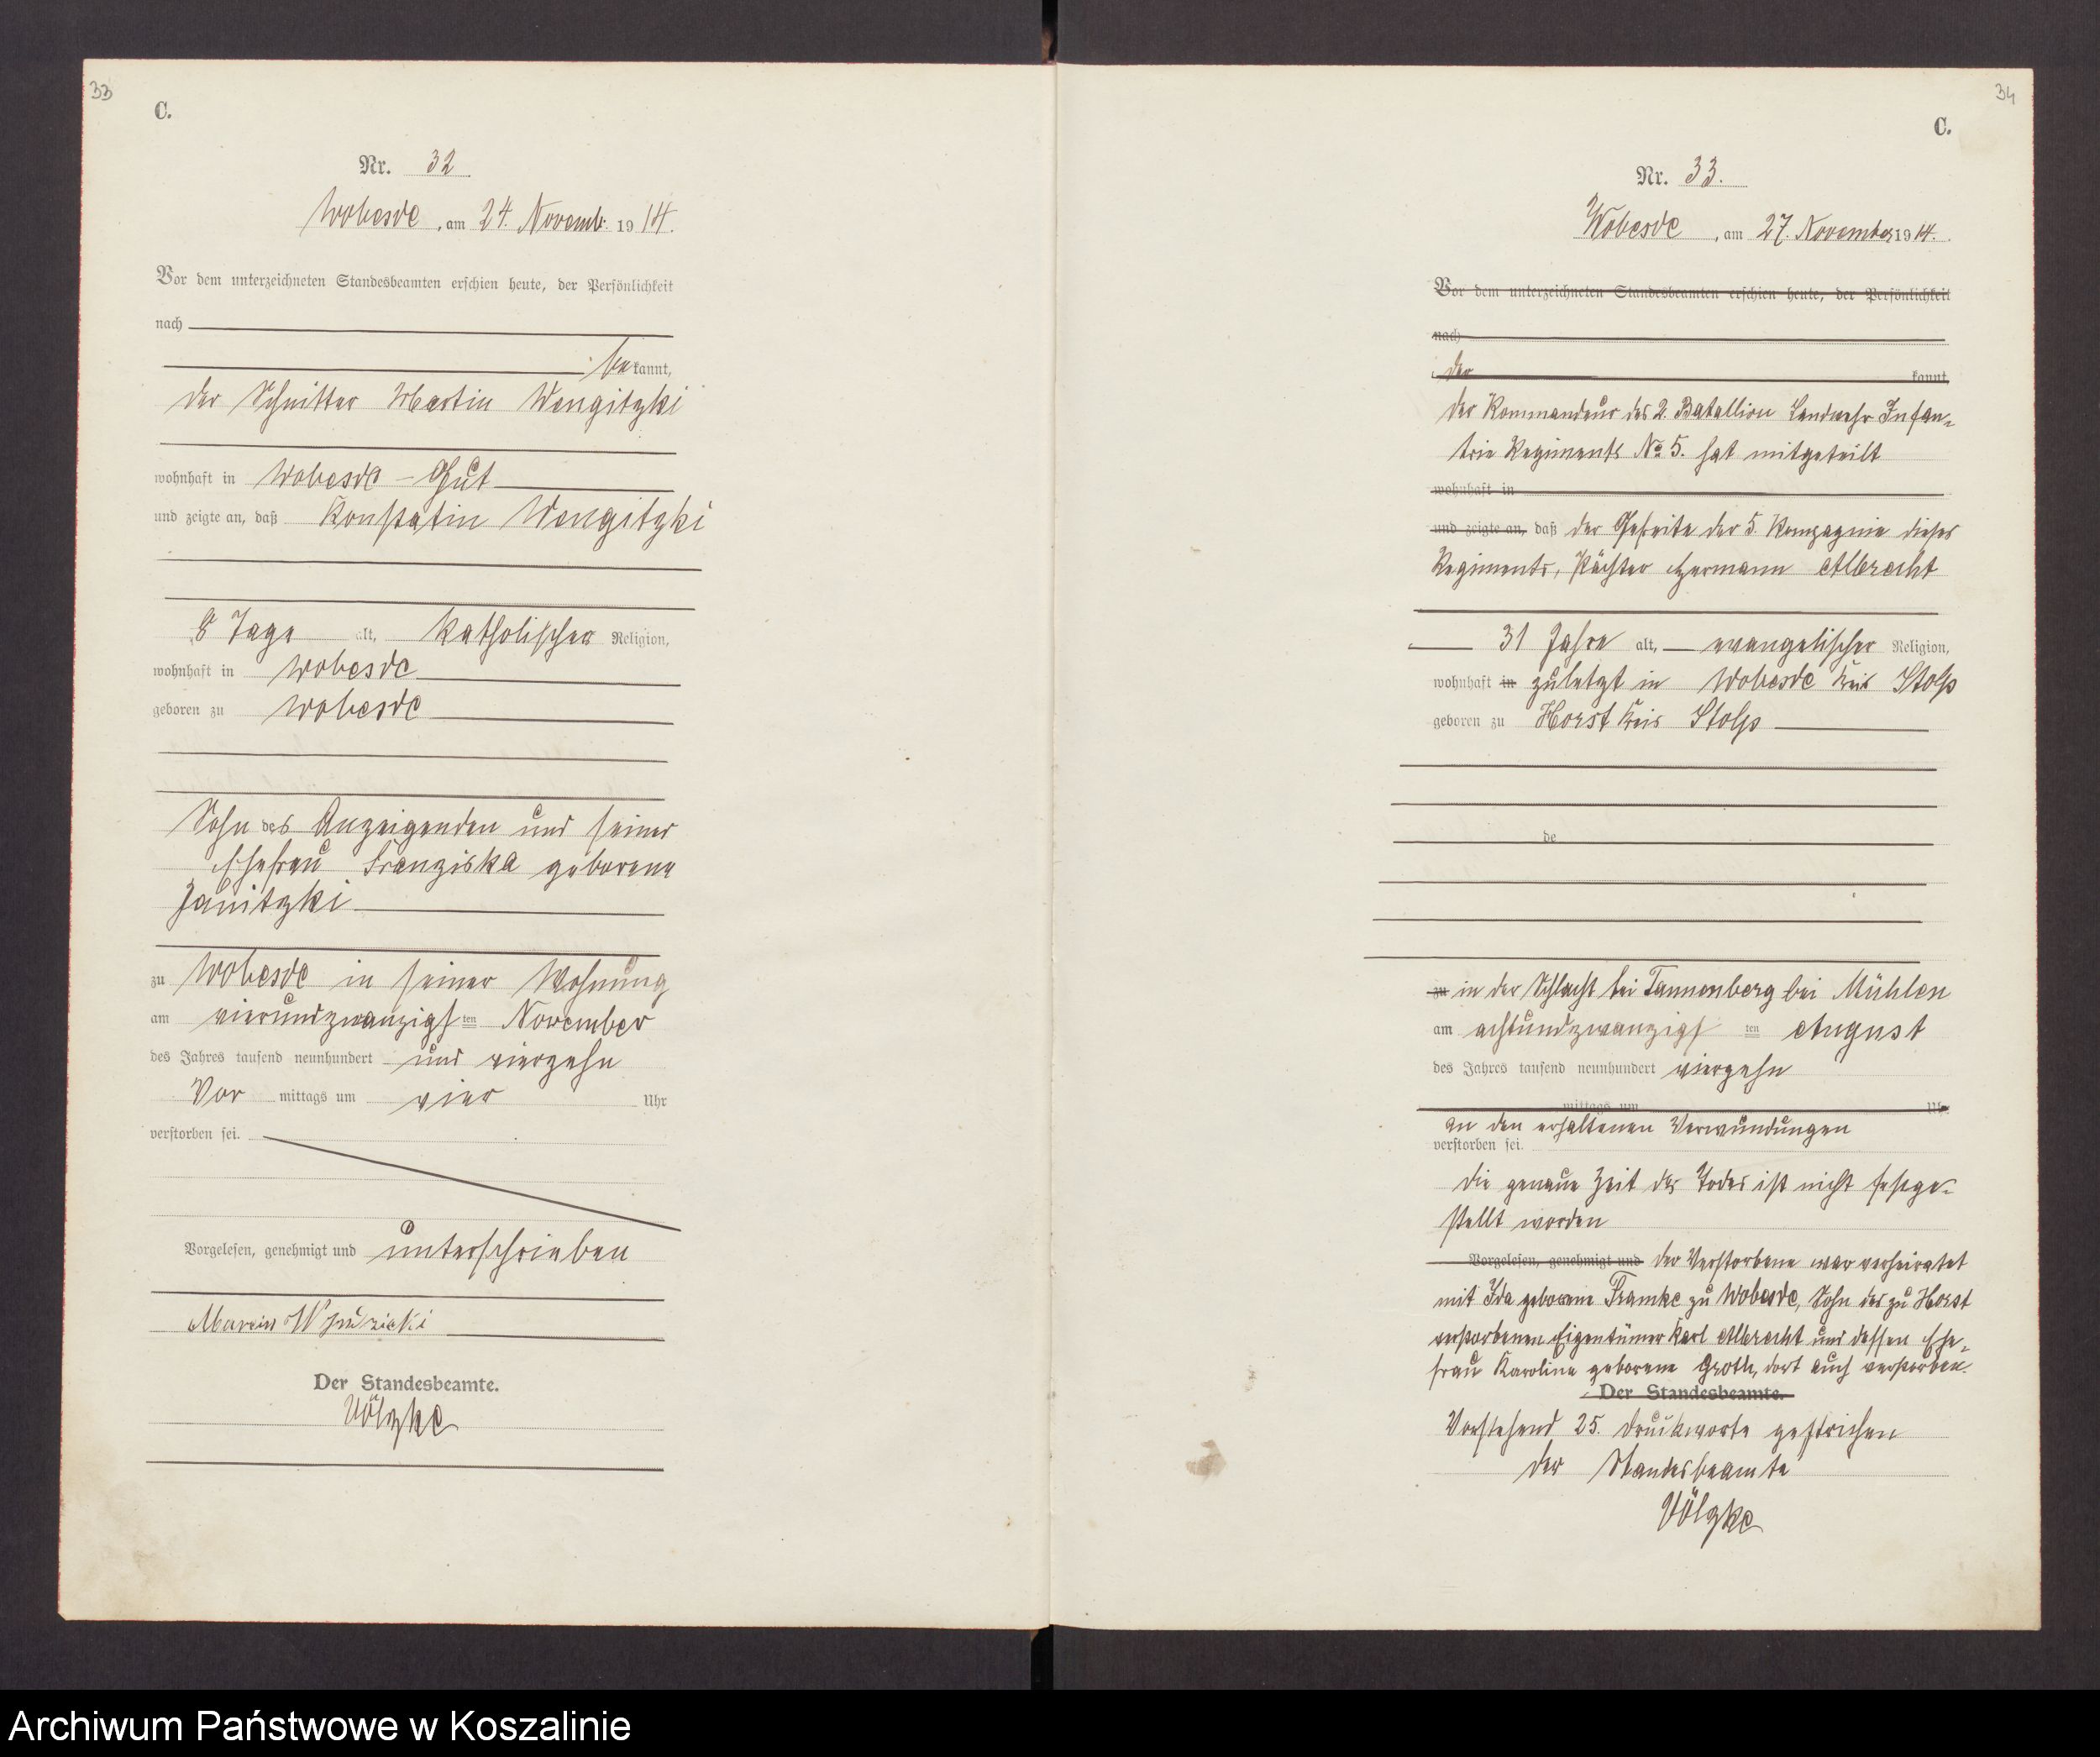 33
C.
Nr. 32
Wobesde, am 24. Novemb. 1914.
Vor dem unterzeichneten Standesbeamten erschien heute, der Persönlichkeit
nach
bekannt,
der Schnitter Martin Wengitzki
wohnhaft in Wobesde - Gut
und zeigte an, daß Konstatin Wengitzki
8 Tage alt, katholischer Religion,
wohnhaft in Wobesde
geboren zu Wobesde
Sohn des Anzeigenden und seiner
Ehefrau Franziska geborene
Janitzki
zu Wobesde in seiner Wohnung
am vierundzwanzigsten November
des Jahres tausend neunhundert und vierzehn
Vor mittags um vier Uhr
verstorben sei.
Vorgelesen, genehmigt und unterschrieben
Marcin
Der Standesbeamte.
Völzke
34
C.
Nr. 33.
Wobesde, am 27. November 1914.
Vor dem unterzeichneten Standesbeamten erschien heute, der Persönlichkeit
nach
der kannt,
der Kommandeur des 2. Batallion Landwehr Infan-
trie Regiments No 5. hat mitgeteilt
wohnhaft in
und zeigte an, daß der Gefreite der 5. Kompagnie dieses
Regiments, Pächter Hermann Albrecht
31 Jahre alt, evangelischer Religion,
wohnhaft in zuletzt in Wobesde Kreis Stolp
geboren zu Horst Kreis Stolp
de
zu in der Schlacht bei Tannenberg bei Mühlen
am achtundzwanzigsten August
des Jahres tausend neunhundert vierzehn
mittags um Uhr
an den erhaltenen Verwundungen
verstorben sei.
Die genaue Zeit des Todes ist nicht festge-
stellt worden
Vorgelesen, genehmigt und der Verstorbene war verheiratet
mit Ida geborene Framke zu Wobesde, Sohn des zu Horst
verstorbenen Eigentümer Karl Albrecht und dessen Ehe-
frau Karoline geborene Groth, dort auch verstorben.
Der Standesbeamte.
Vorstehend 25. Druckworte gestrichen
Der Standesbeamte
Völzke
Archiwum Państwowe w Koszalinie